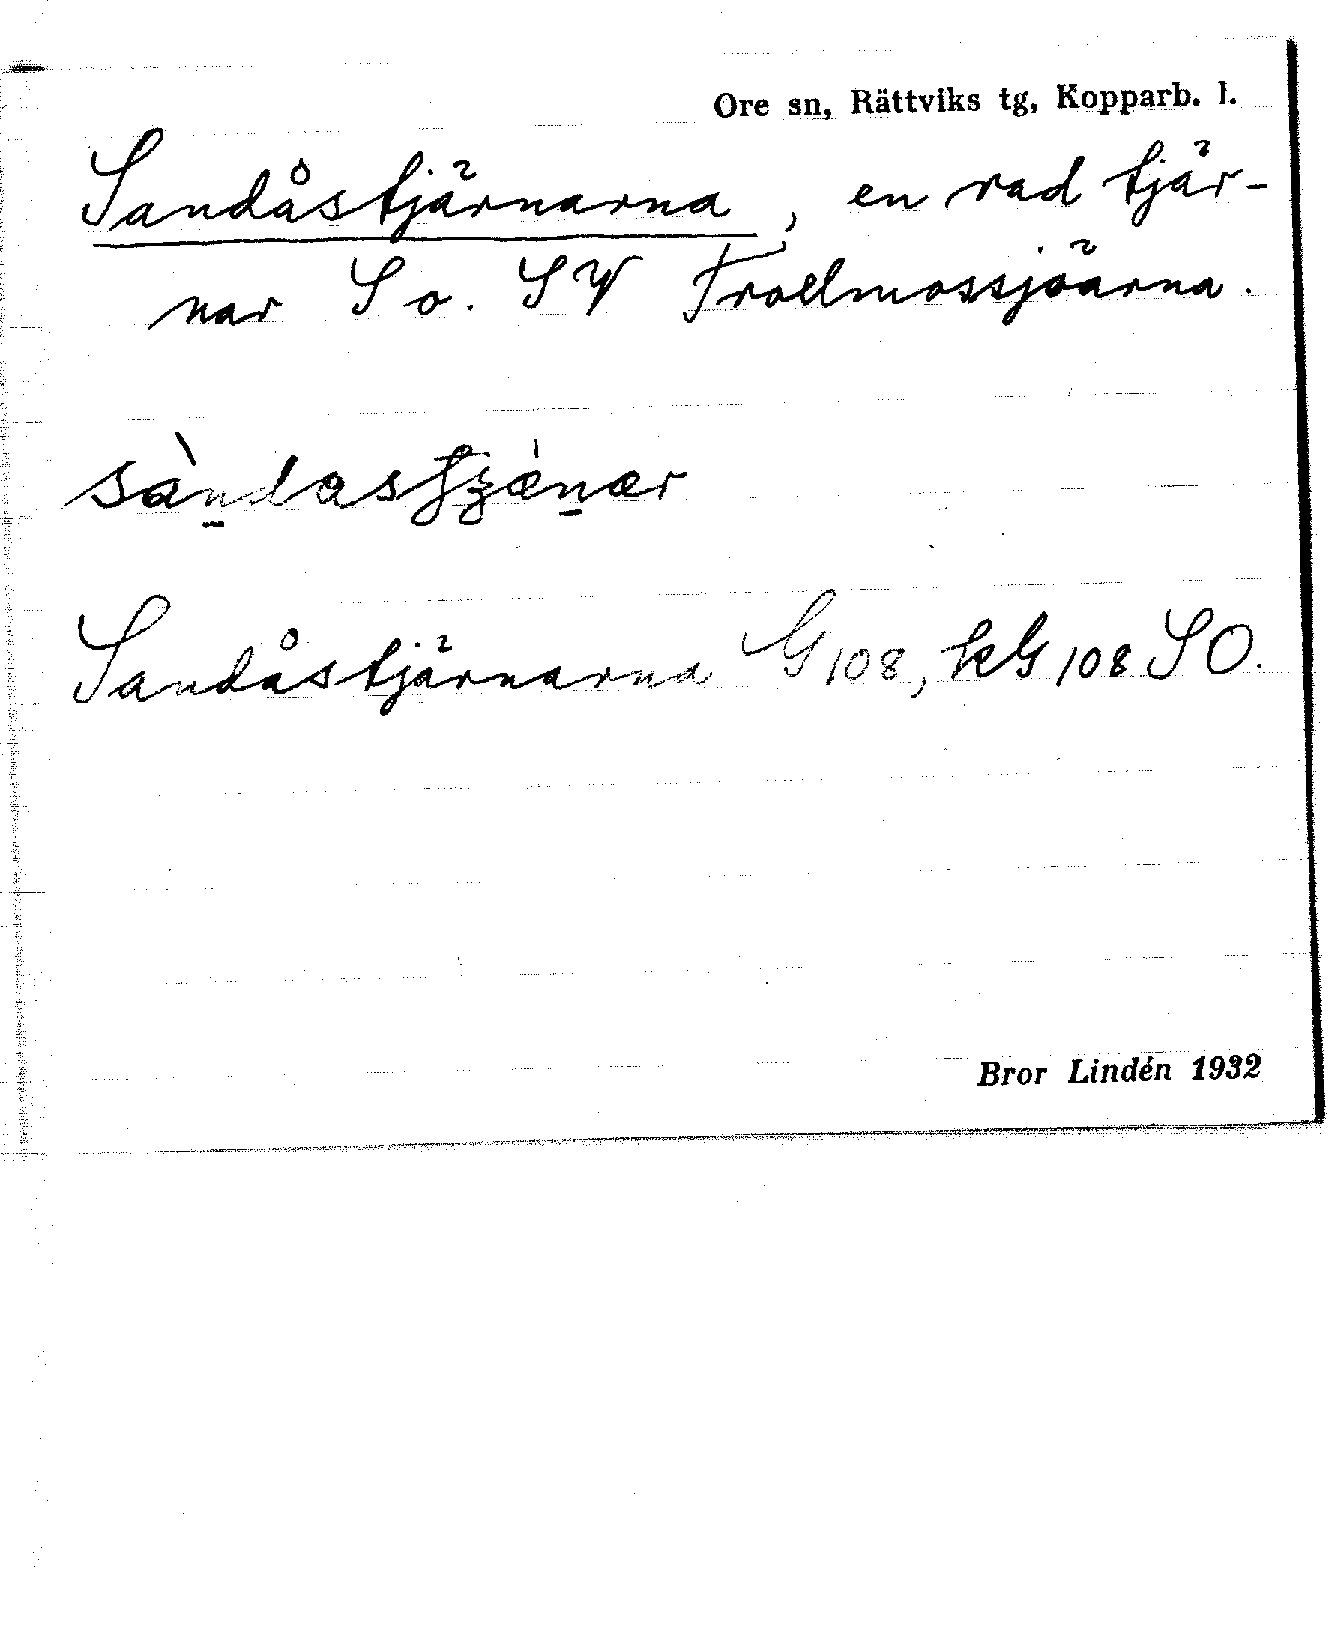 Ore sn, Rättviks tg, Kopparb. l.
Sandåstjärnarna, en rad tjär-
nar S o. SV Trollmossjöarna.
Sandåstjärnarna G 108, kG 108 SO.
Bror Lindén 1932